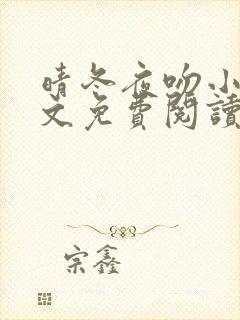 晴冬夜吻小
文免費閱讀
宗鑫